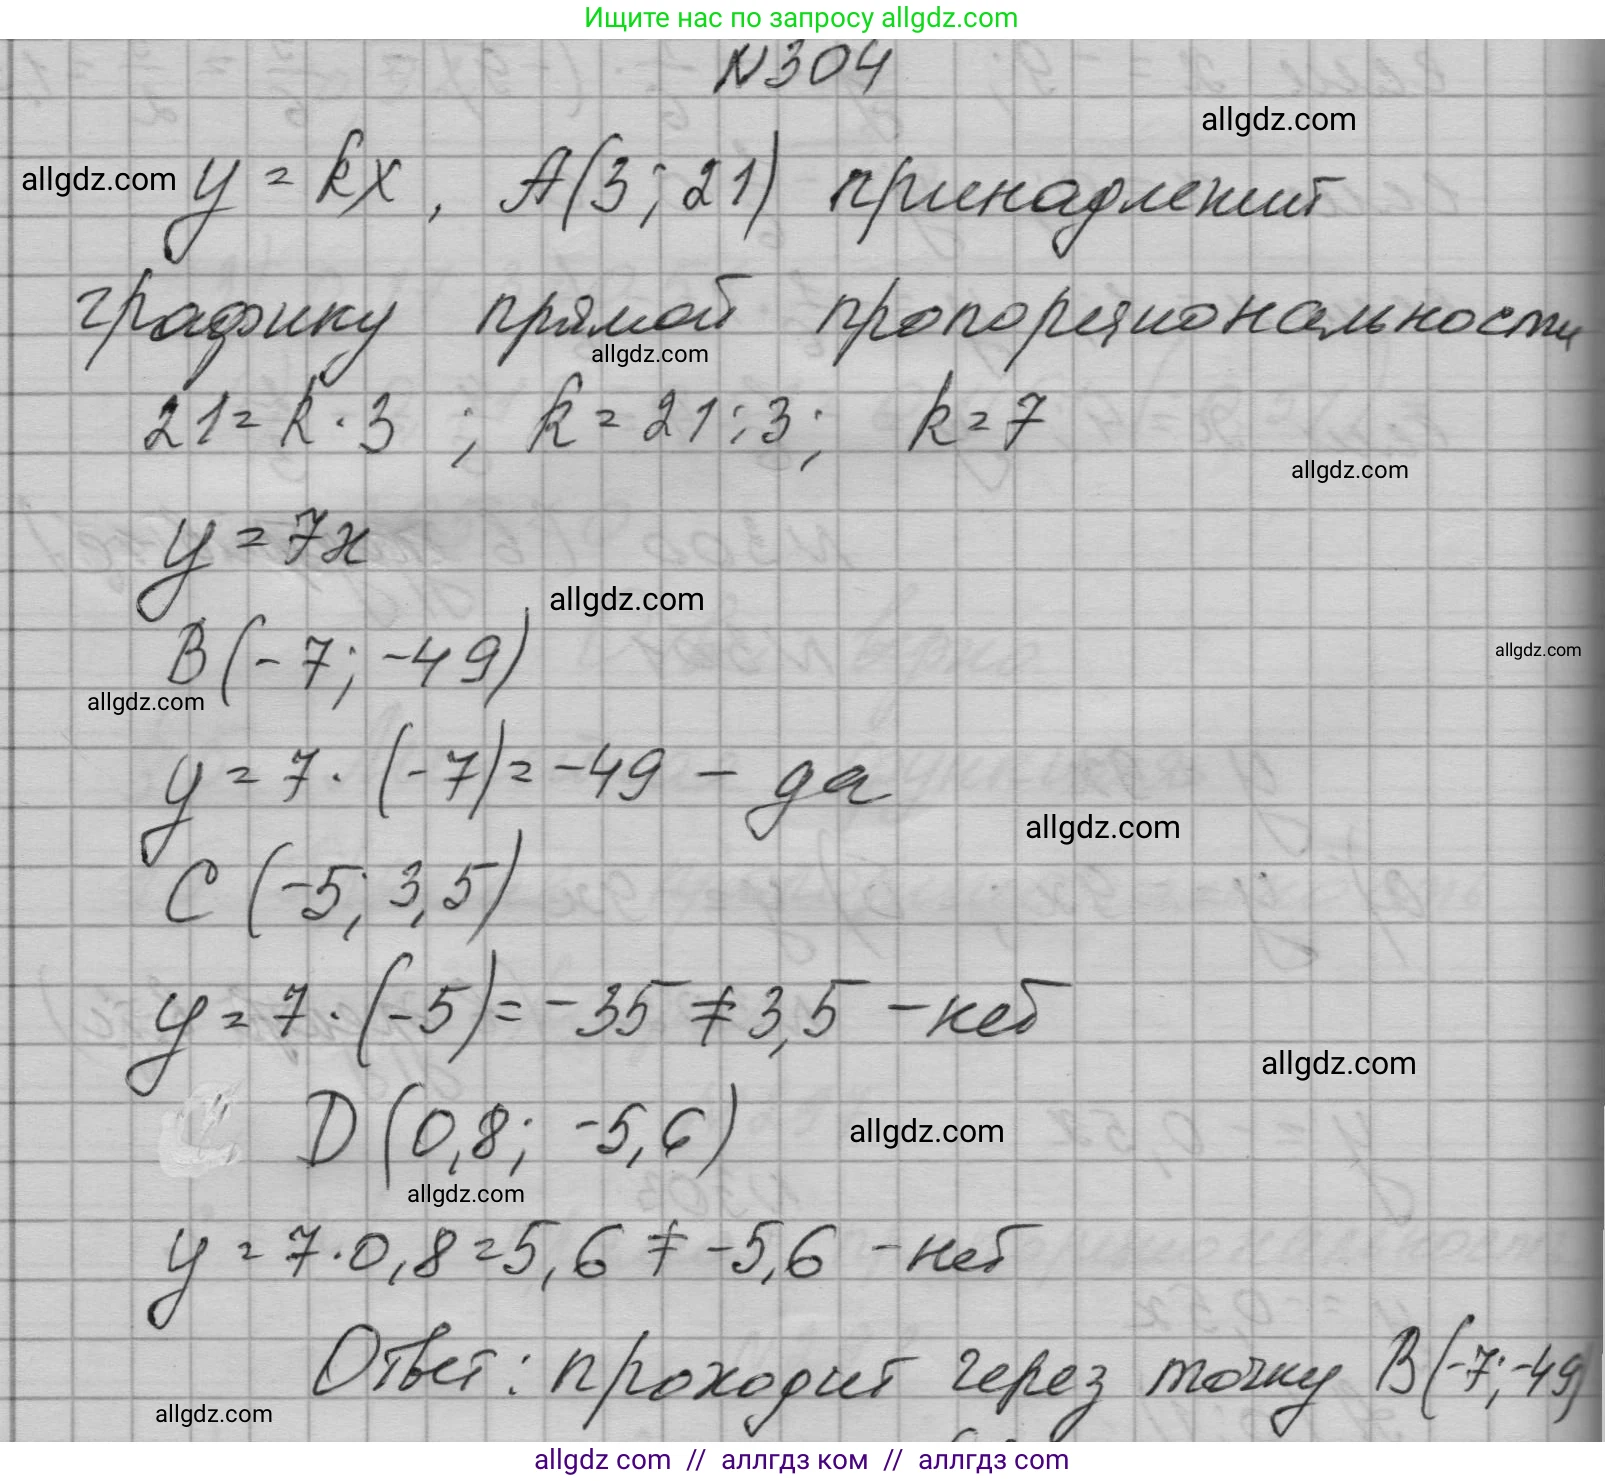 Ищите нас по запросу allgdz.com
N304
allgdz.com
allgdz.com
y = kx, A(3; 21) принадлежит
графику прямой пропорциональности
allgdz.com
21 = k · 3 ; k = 21 : 3; k = 7
allgdz.com
y = 7x
allgdz.com
B(-7; -49)
allgdz.com
allgdz.com
y = 7 · (-7) = -49 - да
allgdz.com
C (-5; 3,5)
y = 7 · (-5) = -35 ≠ 3,5 - нет
allgdz.com
D (0,8; -5,6)
allgdz.com
allgdz.com
y = 7 · 0,8 = 5,6 ≠ -5,6 - нет
Ответ: проходит через точку B(-7; -49)
allgdz.com
allgdz com // аллгдз ком // аллгдз com